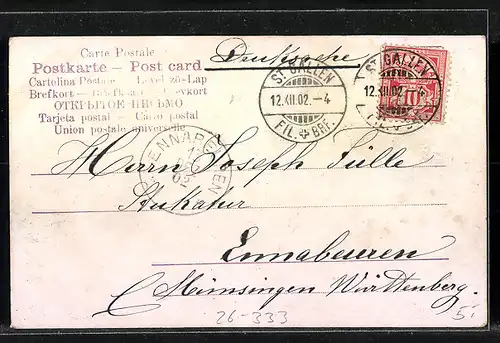 Carte Postale
Postkarte – Post card
Cartolina Postale – Levelező-Lap
Brefkort – Briefkaart – Brevkort
ОТКРЫТОЕ ПИСЬМО
Tarjeta postal – Carto postal
Union postale universelle
Drucksache
ST. GALLEN
12.XII.02.–4
FIL. BRF.
ST. GALLEN
12.XII.02.–4
FIL. BRF.
10
ENNABEUREN
Herrn Joseph Fülle
Stukatur
Ennabeuren
Münsingen Württenberg.
26-333
5.-